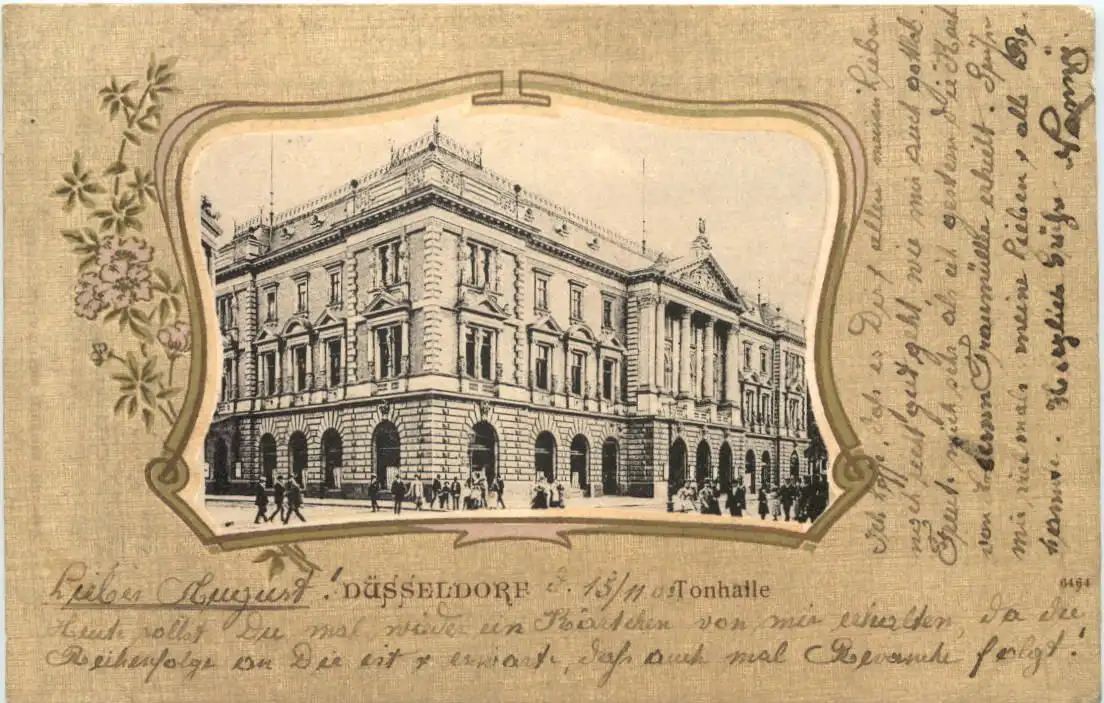 Lieber August! DÜSSELDORF d. 15/11 Tonhalle
6464
Heute sollst Du mal wieder ein Kärtchen von mir erhalten, da die
Reihenfolge an Dir ist & erwarte, daß auch mal Revanche folgt!
Ich hoffe, daß es Dir & allen meinen Lieben
geht wie mir auch gottlob.
Freut mich sehr als ich gestern die Karte
von Traumüller erhielt. Grüße
mir vielmals meine Lieben & alle Be-
kannte. Herzliche Grüße